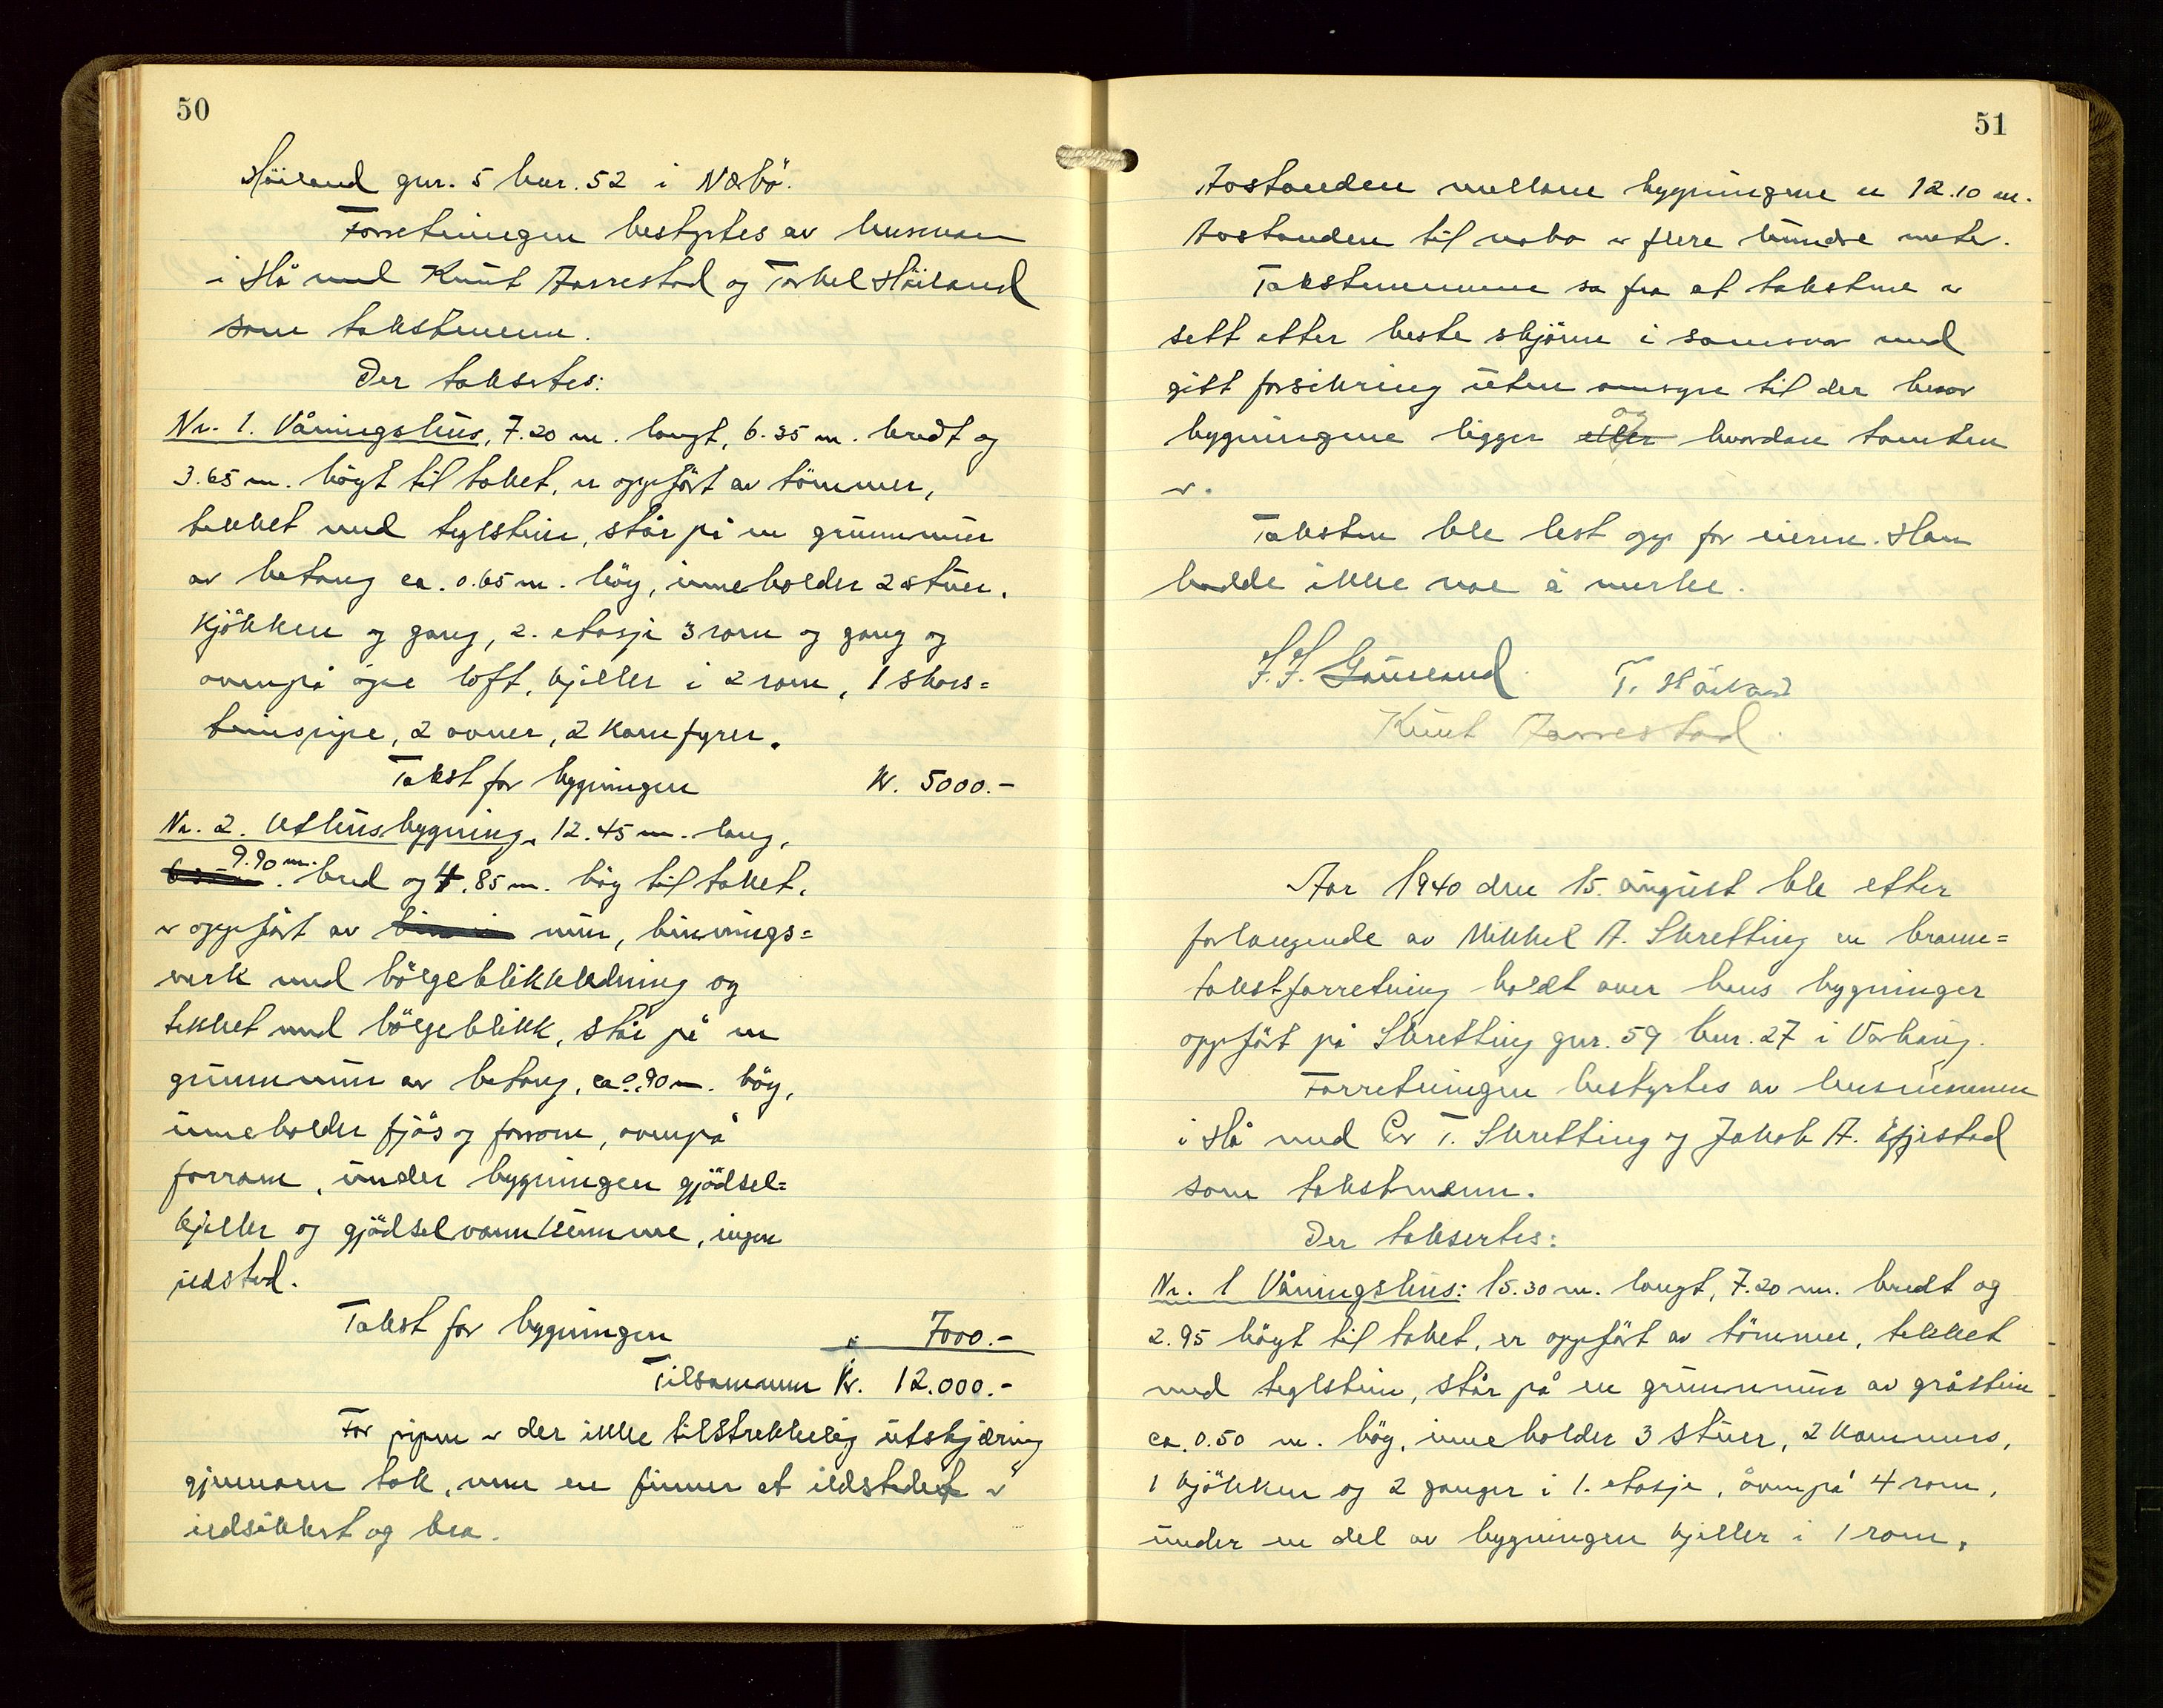 50
Höiland gnr. 5 bnr. 52 i Nærbö.
Forretningen bestyrtes av lensmann
i Hå med Knut Aarrestad og Torkel Höiland
som takstmenn.
Der taksertes:
Nr. 1. Våningshus, 7.20 m. langt, 6.35 m. bredt og
3.65 m. högt til taket, er oppfört av tömmer,
tekket med teglstein, står på en grunnmur
av betong ca. 0.65 m. hög, inneholder 2 stuer,
kjökken og gang, 2. etasje 3 rom og gang og
ovenpå åpe loft, kjeller i 2 rom, 1 skors=
teinspipe, 2 ovner, 2 komfyrer.
Takst for bygningen Kr. 5000.-
Nr. 2. Uthusbygning, 12.45 m. lang,
9.90 m. bred og 4.85 m. hög til taket,
er oppfört av mur, binnings=
verk med bölgeblikkledning og
tekket med bölgeblikk, står på en
grunnmur av betong, ca 0.90 m. hög,
inneholder fjös og forrom, ovenpå
forrom, under bygningen gjödsel=
kjeller og gjödselvannkumme, ingen
ildsted.
Takst for bygningen " 7000.-
Tilsammen Kr. 12.000.-
For pipen er der ikke tilstrekkelig utskjæring
gjennom tak, men en finner at ildstedet er
ildsikkert og bra.
51
Avstanden mellom bygningene er 12.10 m.
Avstanden til nabo er flere hundre meter.
Takstmennene sa fra at takstene er
sett etter beste skjönn i samsvar med
gitt forsikring uten omsyn til der hvor
bygningene ligger eller og hvordan tomten
er.
Taksten ble lest opp for eieren. Han
hadde ikke noe å merke.
J. J. Gausland T. Höiland
Knut Aarrestad.
Aar 1940 den 15. august ble etter
forlangende av Mikkel A. Skretting en brann=
takstforretning holdt over hans bygninger
oppfört på Skretting gnr. 59 bnr. 27 i Varhaug.
Forretningen bestyrtes av lensmannen
i Hå med T. Skretting og Jakob A.
som takstmenn.
Der taksertes:
Nr. 1 Våningshus: 15.30 m. langt, 7.20 m. bredt og
2.95 högt til taket, er oppfört av tömmer, tekket
med teglstein, står på en grunnmur av gråstein
ca. 0.50 m. hög, inneholder 3 stuer, 2 kammers,
1 kjökken og 2 ganger i 1. etasje, ovenpå 4 rom,
under en del av bygningen kjeller i 1 rom,